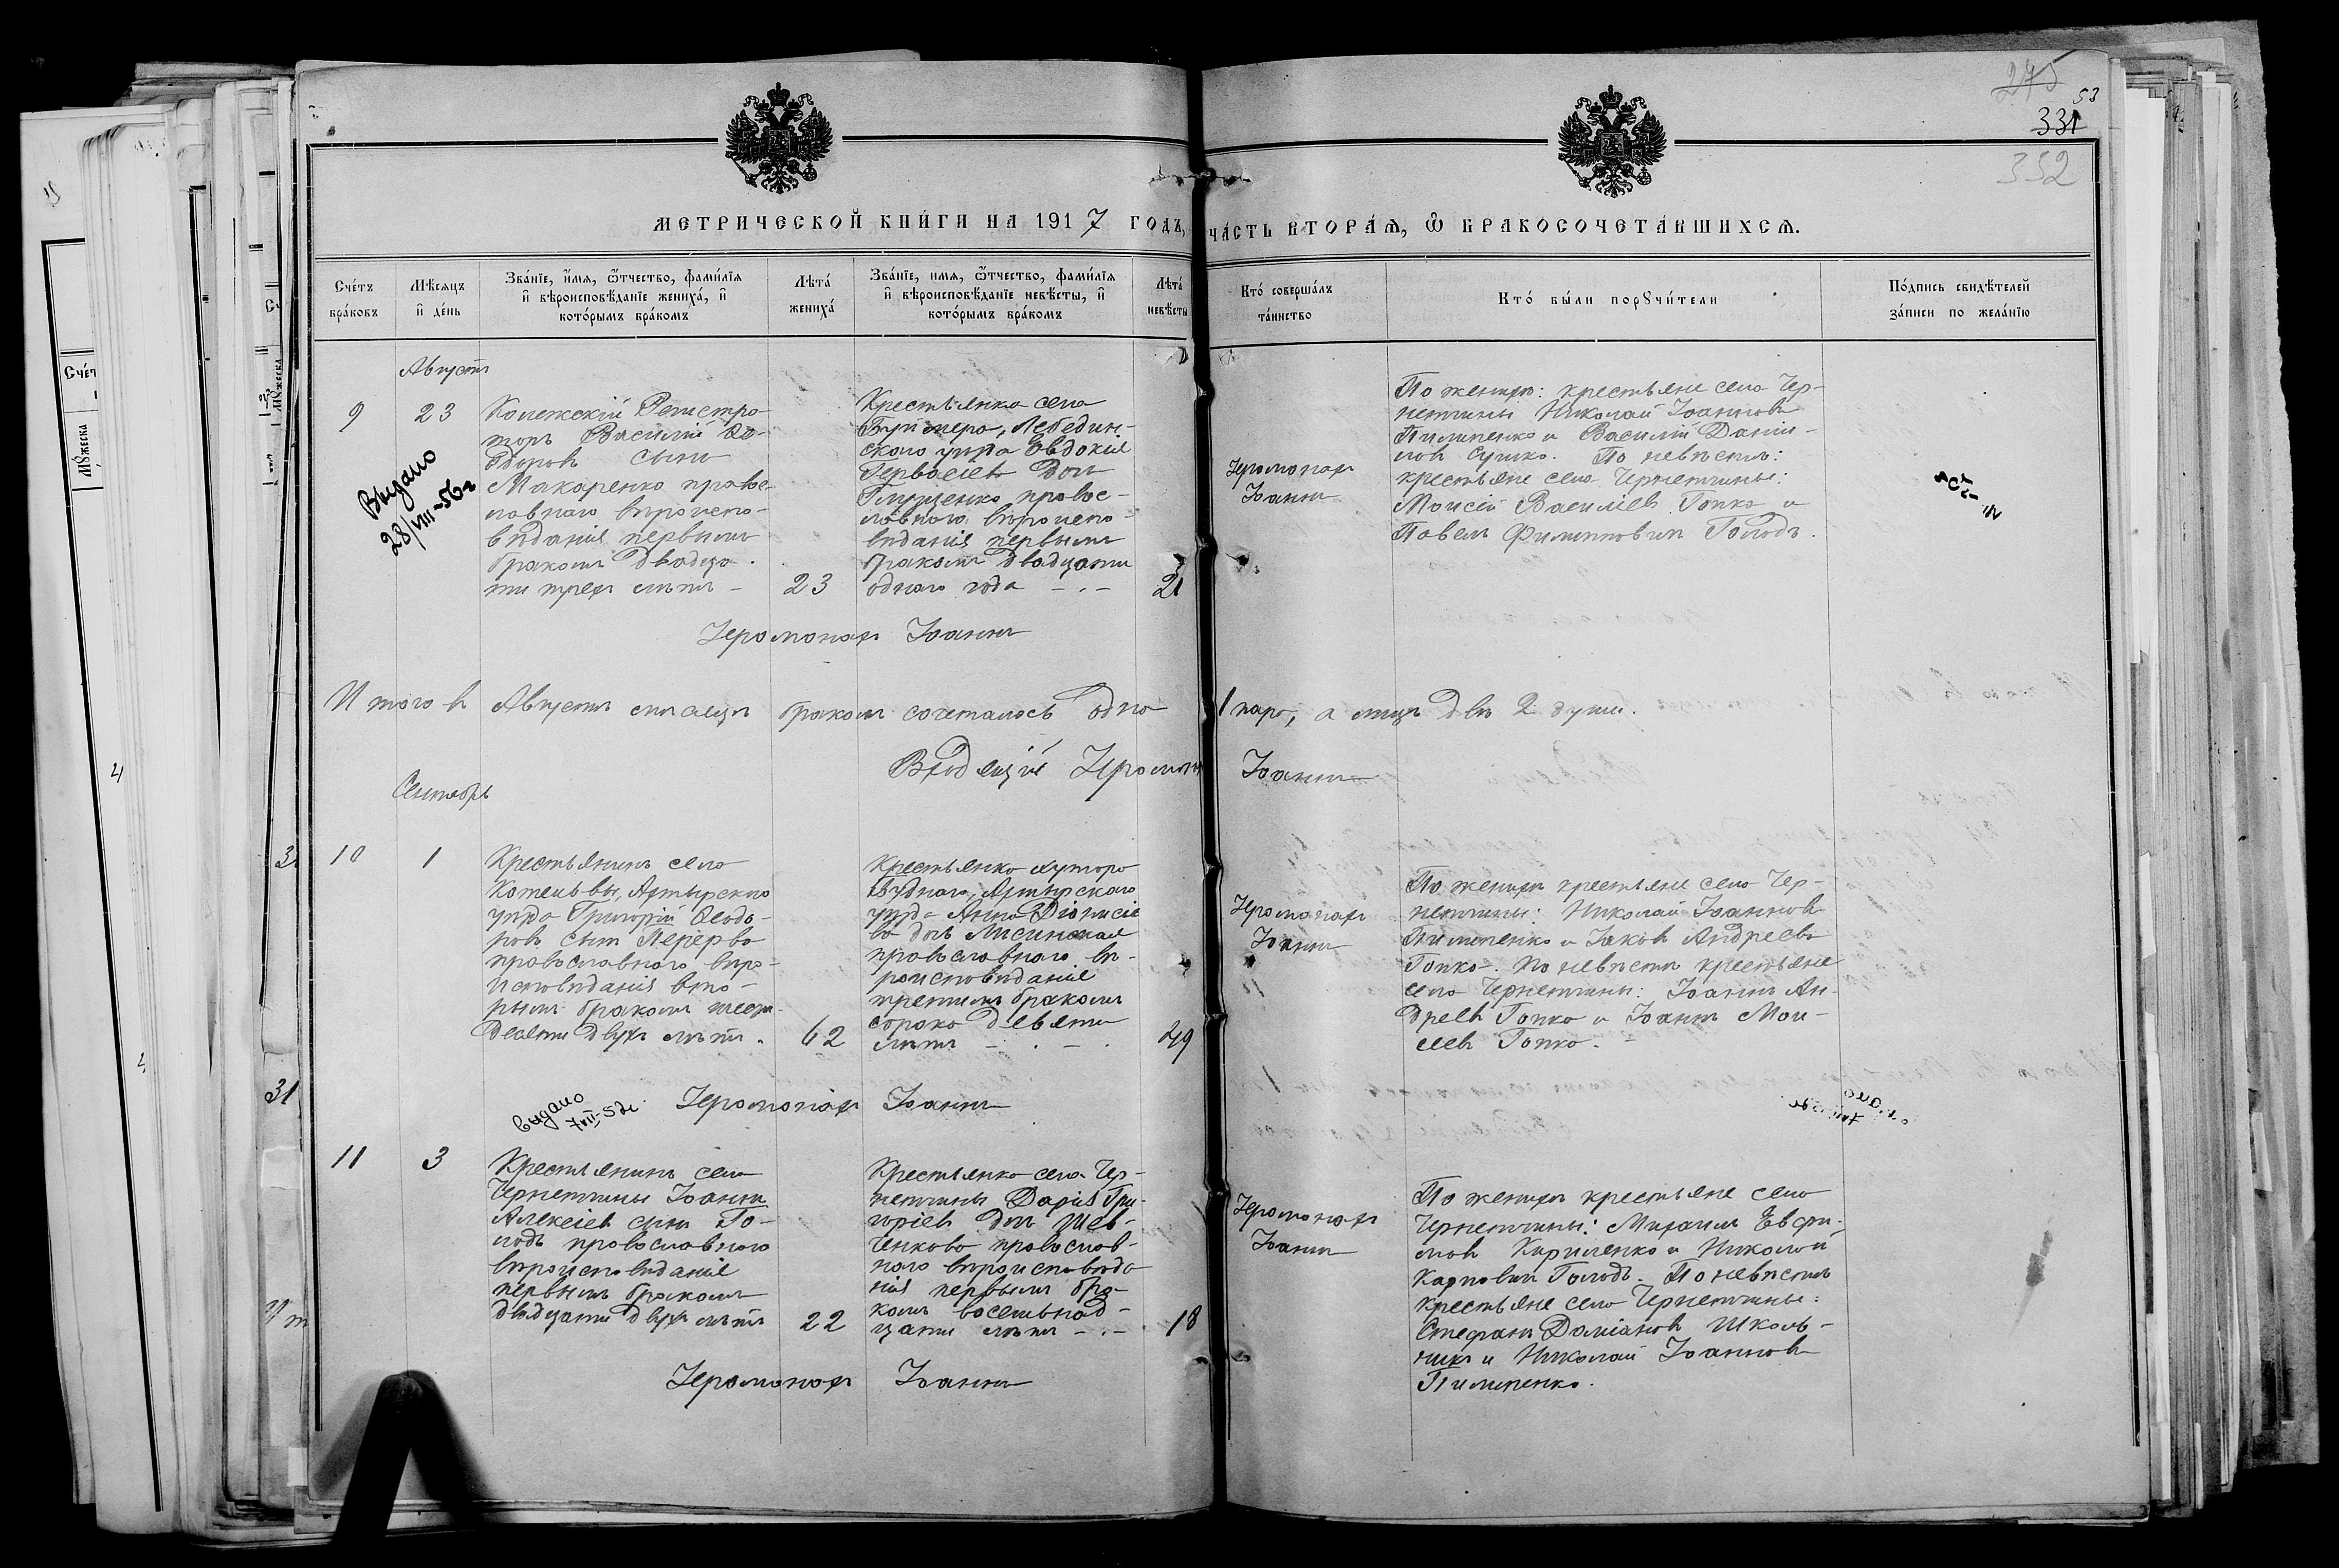 275
53
331
352
МЕТРИЧЕСКОЙ КНИГИ НА 1917 ГОДЪ, ЧАСТЬ ВТОРАѦ, Ѿ БРАКОСОЧЕТАВШИХСѦ.
Счетъ браковъ
Мѣсяцъ и день
Званіе, имя, ѿтчество, фамилія и вѣроисповѣданіе жениха, и которымъ бракомъ
Лѣта жениха
Званіе, имя, ѿтчество, фамилія и вѣроисповѣданіе невѣсты, и которымъ бракомъ
Лѣта невѣсты
Кто совершалъ таинство
Кто были порꙋчители
Подпись свидѣтелей записи по желанію
Августъ
9
23
Колежскій Регистра-
торъ Василій Ѳе-
одоровъ сынъ
Макаренко правос-
лавнаго вѣроиспо-
вѣданія первымъ
бракомъ двадца-
ти трехъ лѣтъ -
23
Выдано
28/VIII-56г
Крестьянка села
Буймера, Лебедин-
скаго уѣзда Евдокія
Гервасіева дочь
Глущенко, правос-
лавнаго вѣроиспо-
вѣданія первымъ
бракомъ двадцати
одного года - . -
21
Іеромонахъ
Іоаннъ
По женихѣ: крестьяне села Чер-
нетчины Николай Іоанновъ
Пилипенко и Василій Даніи-
ловъ Сушко. По невѣстѣ:
крестьяне села Чернетчины:
Моисей Василіевъ Гопка и
Павелъ Филипповичъ Голодъ.
Іеромонахъ Іоаннъ
Итого въ Августѣ мѣсяцѣ бракомъ сочеталось одна 1 пара, а лицъ двѣ 2 души.
Вродящій Іеромон Іоаннъ
Сентябрь
10
1
Крестьянинъ села
Котельвы, Ахтырскаго
уѣзда Григорій Ѳеодо-
ровъ сынъ Перерва
православнаго вѣро-
исповѣданія вто-
рымъ бракомъ шести-
десяти двухъ лѣтъ.
62
Крестьянка хутора
Бѵднаго, Ахтырскаго
уѣзда Анна Діонисіе-
ва дочь Лисинская
православнаго вѣ-
роисповѣданія
третьимъ бракомъ
сорока девяти
лѣтъ - . - .
49
Іеромонахъ
Іоаннъ
По женихѣ крестьяне села Чер-
нетчины: Николай Іоанновъ
Пилипенко и Іаковъ Андреевъ
Гопка. По невѣстѣ крестьяне
села Чернетчины: Іоаннъ Ан-
дреевъ Гопка и Іоаннъ Мои-
сеевъ Гопка.
выдано
7/VII-52г.
Іеромонахъ Іоаннъ
11
3
Крестьянинъ села
Чернетчины Іоаннъ
Алексіевъ сынъ Го-
лодъ православнаго
вѣроисповѣданія
первымъ бракомъ
двадцати двухъ лѣтъ
22
Крестьянка села Чер-
нетчины Дарія Гри-
горіева дочь Шев-
ченкова православ-
наго вѣроисповѣда-
нія первымъ бра-
комъ восемьнад-
цати лѣтъ - . -
18
Іеромонахъ
Іоаннъ
По женихѣ крестьяне села
Чернетчины: Михаилъ Евфи-
мовъ Кириленко и Николай
Карповичъ Голодъ. По невѣстѣ
крестьяне села Чернетчины:
Стефанъ Даміановъ Школь-
никъ и Николай Іоанновъ
Пилипенко.
Іеромонахъ Іоаннъ